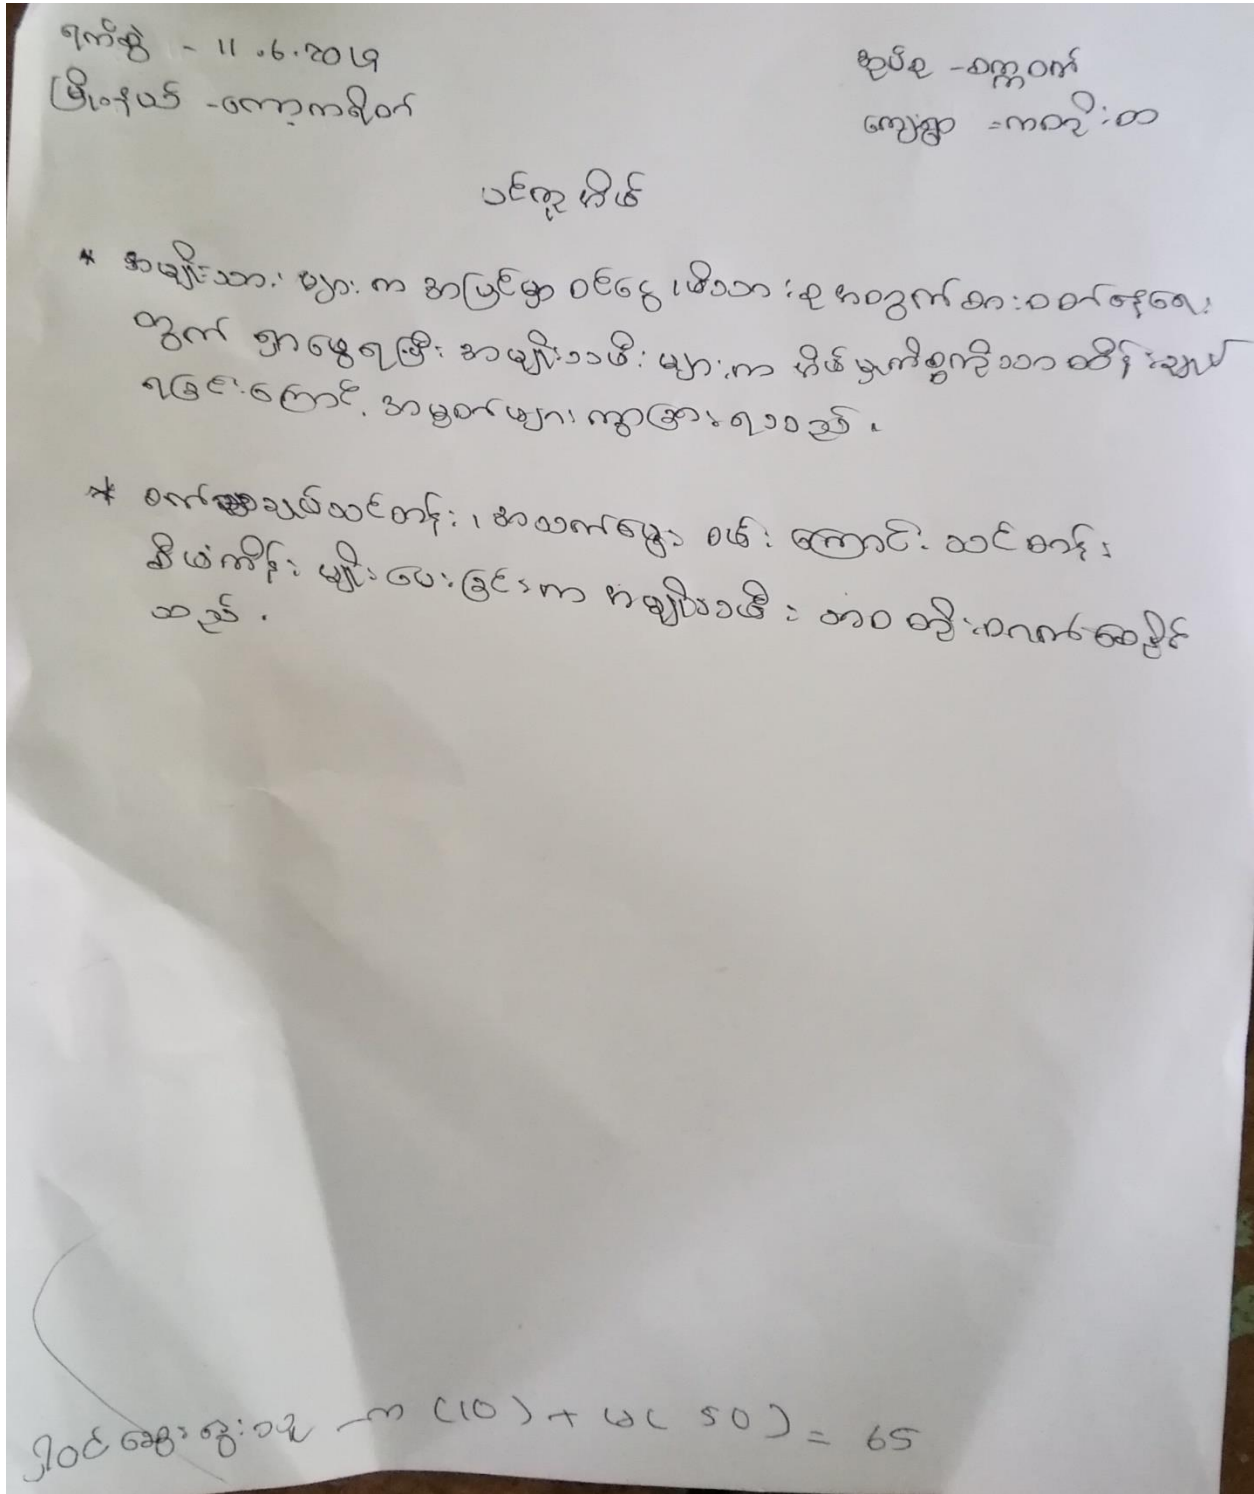 ရက်စွဲ - 11.6.2019
အုပ်စု - စက္ကဝက်
မြို့နယ် - ကော့ကရိတ်
ကျေးရွာ =
ပင်ကူအိမ်
* အမျိုးသားများက အပြင်မှာ ဝင်ငွေ၊ မိသားစုအတွက်စားဝတ်နေရေး
တွက် ရှာဖွေရပြီး အမျိုးသမီးများက အိမ်မှုကိစ္စကိုသာ ထိန်းချုပ်
ရခြင်းကြောင့် အမွတ်များ ကွာခြားရသည်.
* စက်ချုပ်သင်တန်း၊ အသက်မွေး ဝမ်းကြောင်း သင်တန်း
စီမံကိန်းမျိုးပေးခြင်းက အမျိုးသမီးဘဝ တိုးတက်စေနိုင်
သည်.
ပါဝင်ဆွေးနွေးသူ - က (10) + မ ( 50 ) = 65